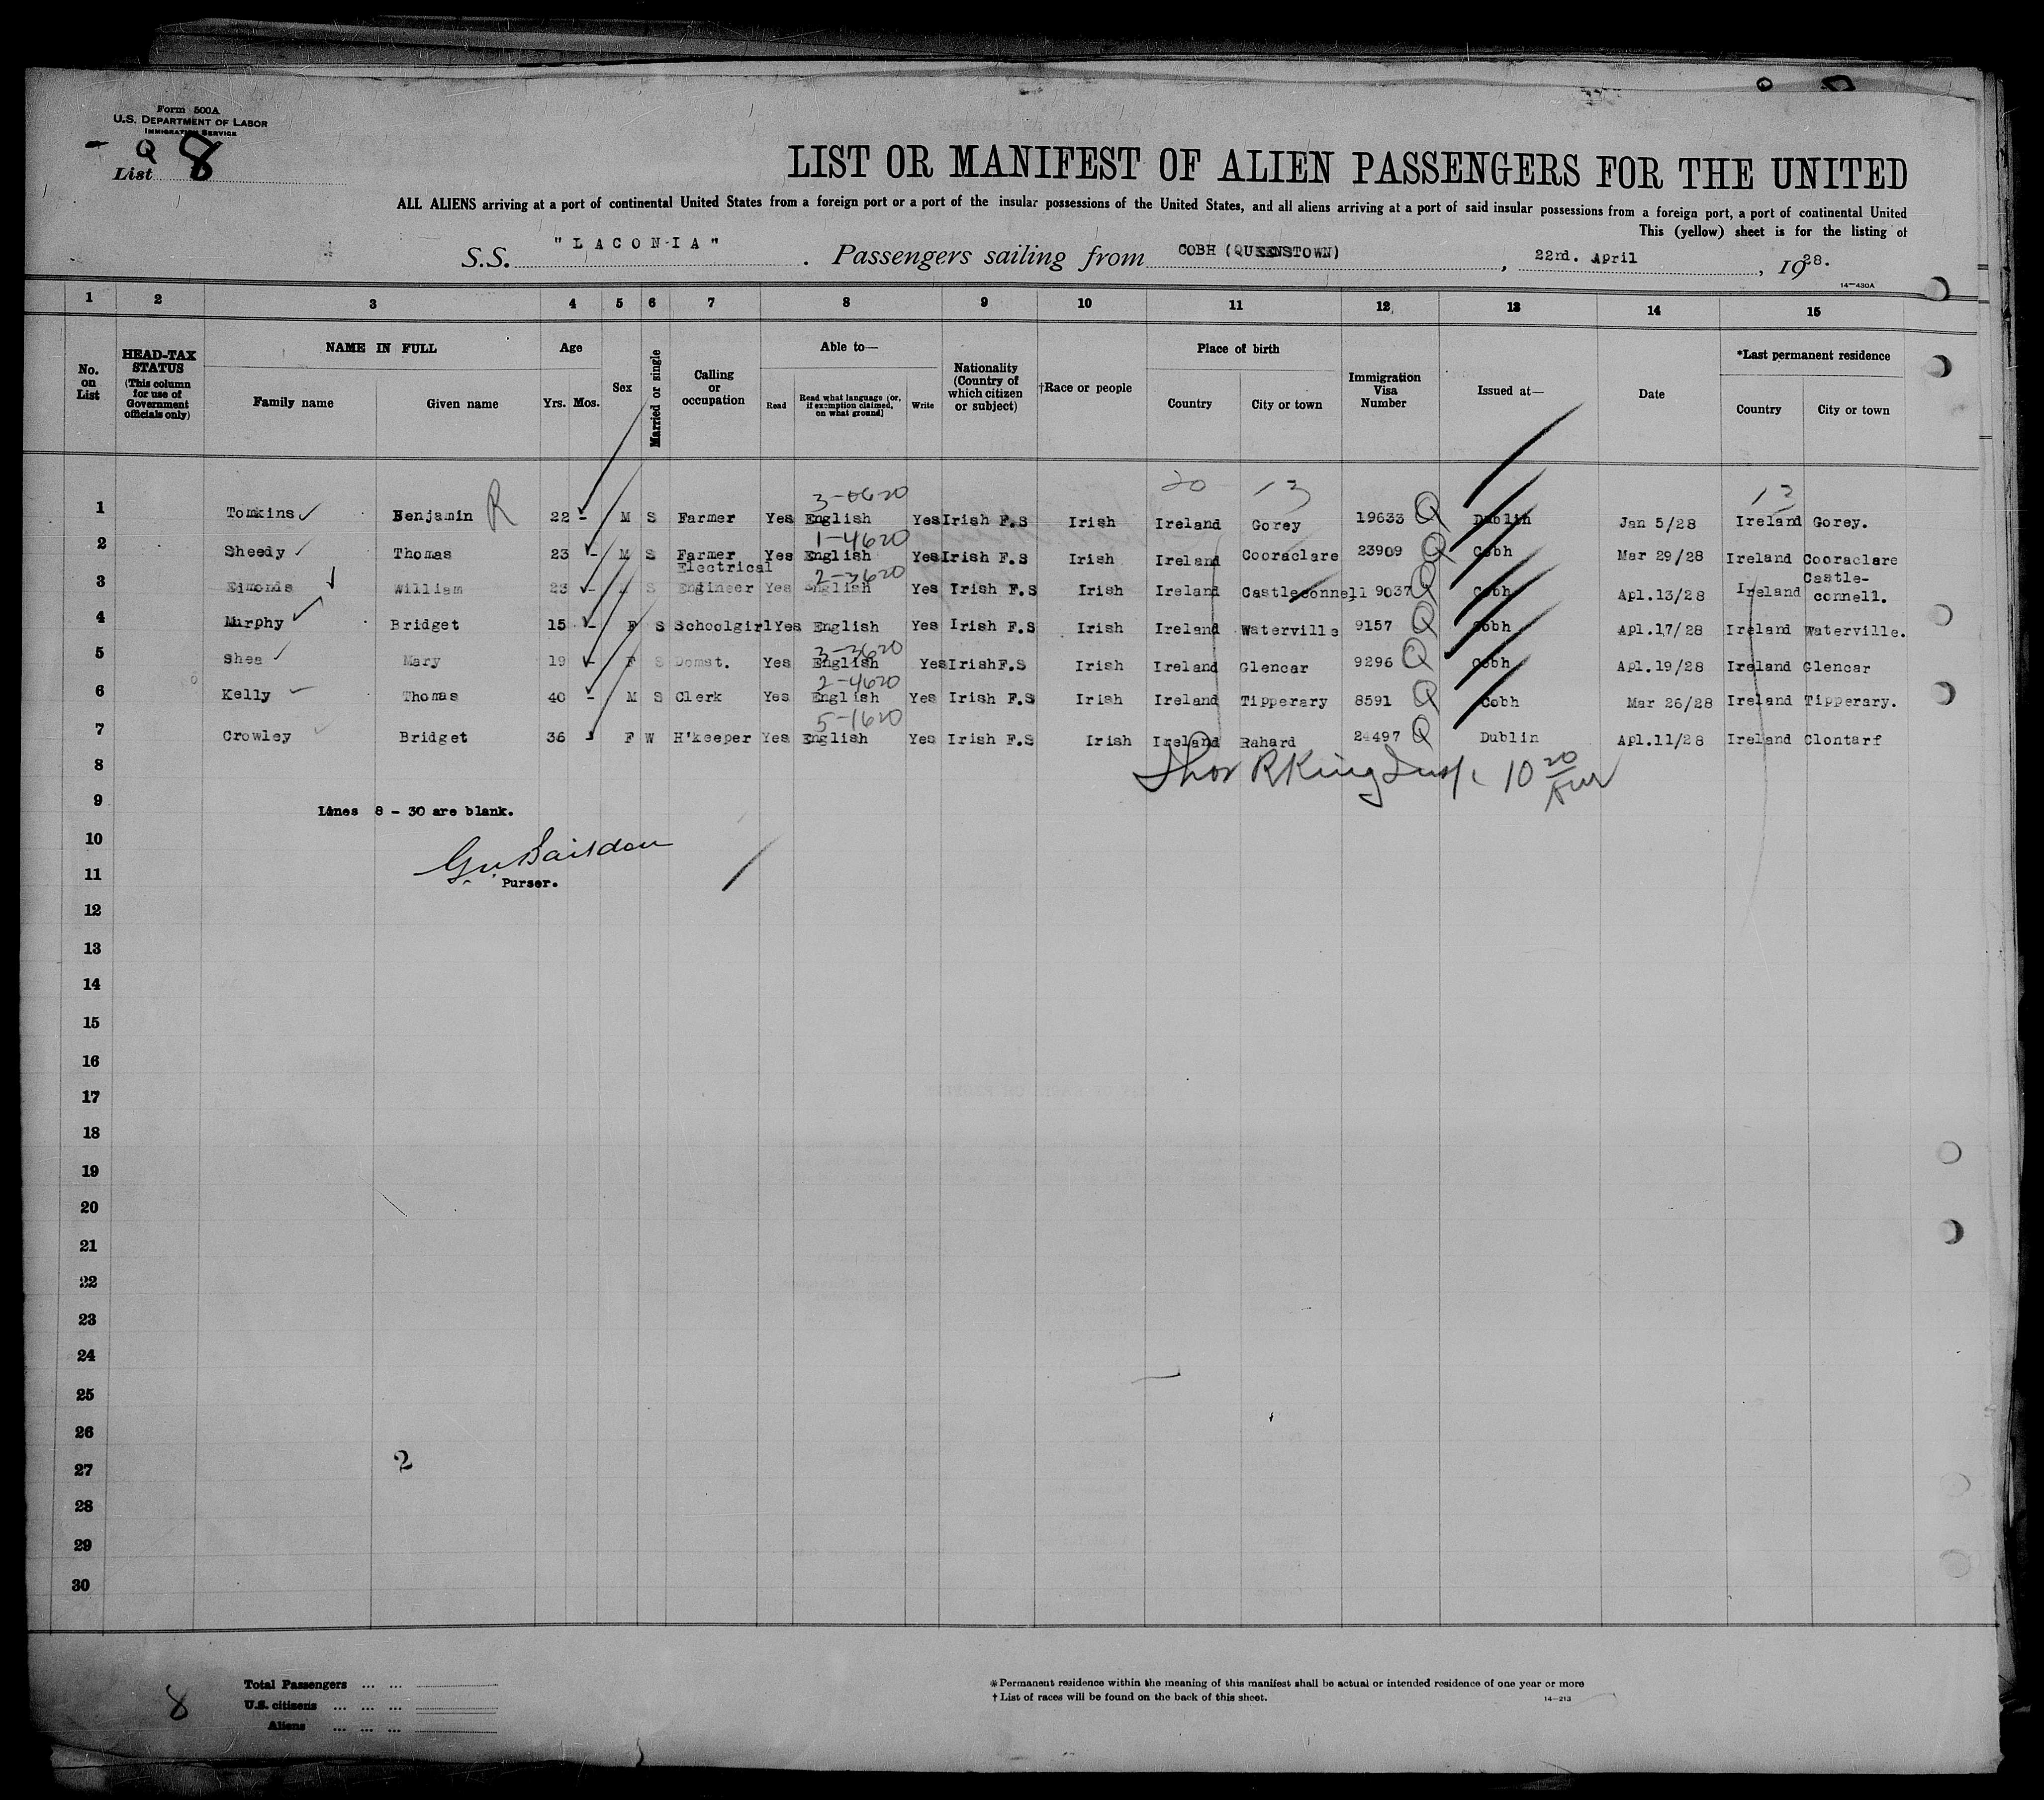 Form 500A
U.S. DEPARTMENT OF LABOR
IMMIGRATION SERVICE
- Q
List 8
LIST OR MANIFEST OF ALIEN PASSENGERS FOR THE UNITED
ALL ALIENS arriving at a port of continental United States from a foreign port or a port of the insular possessions of the United States, and all aliens arriving at a port of said insular possessions from a foreign port, a port of continental United
This (yellow) sheet is for the listing of
S.S. "LACONIA". Passengers sailing from COBH (QUEENSTOWN), 22rd. April, 1928.
14-430A
1 2 3 4 5 6 7 8 9 10 11 12 13 14 15
No. on List
HEAD-TAX STATUS (This column for use of Government officials only)
NAME IN FULL
Family name Given name
Age
Yrs. Mos.
Sex
Married or single
Calling or occupation
Able to—
Read Read what language (or, if exemption claimed, on what ground) Write
Nationality (Country of which citizen or subject)
†Race or people
Place of birth
Country City or town
Immigration Visa Number
Issued at—
Date
*Last permanent residence
Country City or town
3-0620 20 13 13
1 Tomkins Benjamin R 22 - M S Farmer Yes English Yes Irish F.S Irish Ireland Gorey 19633 Q Dublin Jan 5/28 Ireland Gorey.
1-4620
2 Sheedy Thomas 23 - M S Farmer Yes English Yes Irish F.S Irish Ireland Cooraclare 23909 Q Cobh Mar 29/28 Ireland Cooraclare
2-3620
3 Edmonds William 23 - M S Electrical Engineer Yes English Yes Irish F.S Irish Ireland Castleconnell 19037 Q Cobh Apl.13/28 Ireland Castle-connell.
4 Murphy Bridget 15 - F S Schoolgirl Yes English Yes Irish F.S Irish Ireland Waterville 9157 Q Cobh Apl.17/28 Ireland Waterville.
3-3620
5 Shea Mary 19 - F S Domst. Yes English Yes Irish F.S Irish Ireland Glencar 9296 Q Cobh Apl.19/28 Ireland Glencar
2-4620
6 Kelly Thomas 40 - M S Clerk Yes English Yes Irish F.S Irish Ireland Tipperary 8591 Q Cobh Mar 26/28 Ireland Tipperary.
5-1620
7 Crowley Bridget 36 - F W H'keeper Yes English Yes Irish F.S Irish Ireland Rahard 24497 Q Dublin Apl.11/28 Ireland Clontarf
8 Thos R King Insp. 10 20
9
Lines 8 - 30 are blank.
10
11
Purser.
12
13
14
15
16
17
18
19
20
21
22
23
24
25
26
27 2
28
29
30
Total Passengers ... ...
U.S. citizens ... ... ...
Aliens ... ... ...
8
* Permanent residence within the meaning of this manifest shall be actual or intended residence of one year or more
† List of races will be found on the back of this sheet. 14-213